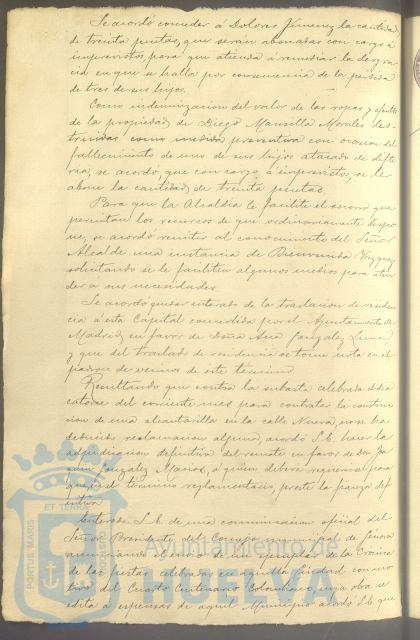 Se acordó conceder á Dolores Jimenez la cantidad
de treinta pesetas, que serán abonadas con cargo á
imprevistos, para que atienda á remediar la desgra-
cia en que se halla por consecuencia de la pérdida
de tres de sus hijos.
Como indemnizacion del valor de las ropas y efectos
de la propiedad de Diego Mansilla Morales des-
truidas como medida preventiva con ocasion del
fallecimiento de uno de sus hijos atacado de difte-
ria, se acordó, que con cargo á imprevistos, se le
abone la cantidad de treinta pesetas.
Para que la Alcaldia le facilite el socorro que
permitan los recursos de que ordinariamente dispo-
ne, se acordó remitir al conocimiento del Señor
Alcalde una instancia de Bienvenida Vazquez
solicitando se le faciliten algunos medios para aten-
der á sus necesidades.
Se acordó quedar enterado de la traslacion de residen-
cia á esta Capital concedida por el Ayuntamiento de
Madrid en favor de Doña Ana Gonzalez Luna,
y que del traslado de residencia se tome nota en el
padron de vecinos de este término.
Resultando que contra la subasta celebrada el dia
catorce del corriente mes para contratar la construc-
cion de una alcantarilla en la calle Nueva, no se ha
deducido reclamacion alguna, acordó S.E. hacer la
adjudicacion definitiva del remate en favor de Don Joa-
quin Gonzalez á quien deberá requerirse para
que, en el término reglamentario, preste la fianza def-
initiva.
Enterado S.E. de una comunicacion oficial del
Señor Presidente del Consejo municipal de Génova
anunciando el envio de un ejemplar de la Crónica
de las fiestas celebradas en aquella Ciudad con mo-
tivo del Cuarto Centenario Colombino, cuya obra se
editó á expensas de aquel Municipio acordó S.E. que
PORTUS MARIS
ET TERRAE
CUSTODIA
Ayuntamiento de
HUELVA